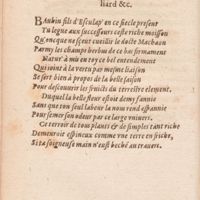 liard &c.
BAuhin fils d'Esculap' en ce siecle present
Tu legue aux successeurs ceste riche moisson
Qu'onques n'eust cueillir le docte Machaon
Parmy les champs herbus de ce bas firmament
Natur' à mis en toy ce bel entendement
Qui joint à la vertu par mesme liaison
Se sert bien à propos de la belle saison
Pour descouvrir les fruicts du terrestre element.
Duquel la belle fleur estoit demy fannie
Sans que ton seul labeur la nom rend espannie
Pour semer son odeur par ce large univers.
Ce terroir de tous plants & de simples tant riche
Demeuroit espineux comme une terre en friche,
Si ta soigneuse main n'eust beché au travers.